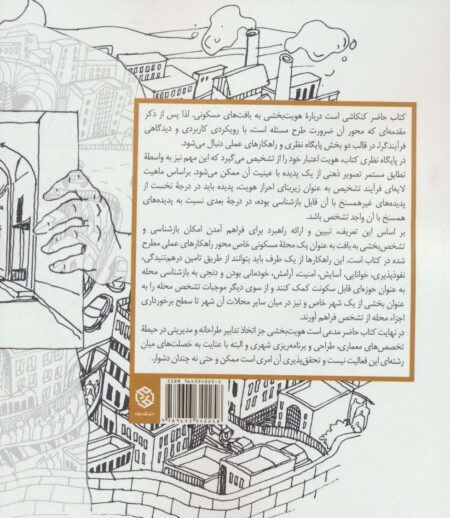 کتاب حاضر کنکاشی است دربارهٔ هویت‌بخشی به بافت‌های مسکونی. لذا پس از ذکر
مقدمه‌ای که محور آن ضرورت طرح مسئله است، با رویکردی کاربردی و دیدگاهی
فرآیندگرا، در قالب دو بخش پایگاه نظری و راهکارهای عملی دنبال می‌شود.
در پایگاه نظری کتاب، هویت اعتبار خود را از تشخیص می‌گیرد که این مهم نیز به واسطهٔ
تطابق مستمر تصویر ذهنی از یک پدیده با عینیت آن ممکن می‌شود. براساس ماهیت
لایه‌ای فرآیند تشخیص به عنوان زیربنای احراز هویت، پدیده باید در درجهٔ نخست از
پدیده‌های غیرهمسنخ با آن قابل بازشناسی بوده، در درجهٔ بعدی نسبت به پدیده‌های
همسنخ با آن واجد تشخص باشد.
بر اساس این تعریف، تبیین و ارائه راهبرد برای فراهم آمدن امکان بازشناسی و
تشخص‌بخشی به بافت به عنوان یک محلهٔ مسکونی خاص محور راهکارهای عملی مطرح
شده در کتاب است. این راهکارها از یک طرف باید بتوانند از طریق تامین درهم‌تنیدگی،
نفوذپذیری، خوانایی، آسایش، امنیت، آرامش، خودمانی بودن و دنجی به بازشناسی محله
به عنوان حوزه‌ای قابل سکونت کمک کنند و از سوی دیگر موجبات تشخص محله را به
عنوان بخشی از یک شهر خاص و نیز در میان سایر محلات آن شهر تا سطح برخورداری
اجزاء محله از تشخص فراهم آورند.
در نهایت کتاب حاضر مدعی است هویت‌بخشی جز اتخاذ تدابیر طراحانه و مدیریتی در حیطهٔ
تخصص‌های معماری، طراحی و برنامه‌ریزی شهری و البته با عنایت به خصلت‌های میان
رشته‌ای این فعالیت نیست و تحقق‌پذیری آن امری است ممکن و حتی نه چندان دشوار.